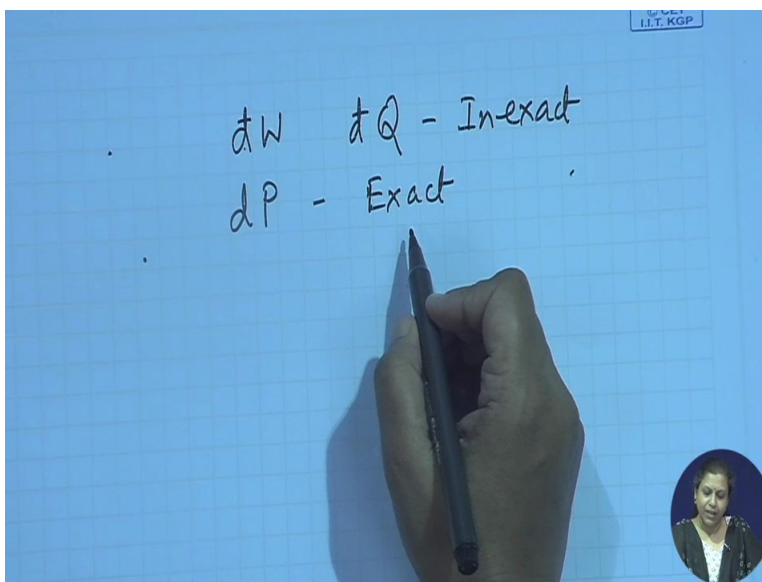 © CET
I.I.T. KGP
đW đQ - Inexact
dP - Exact